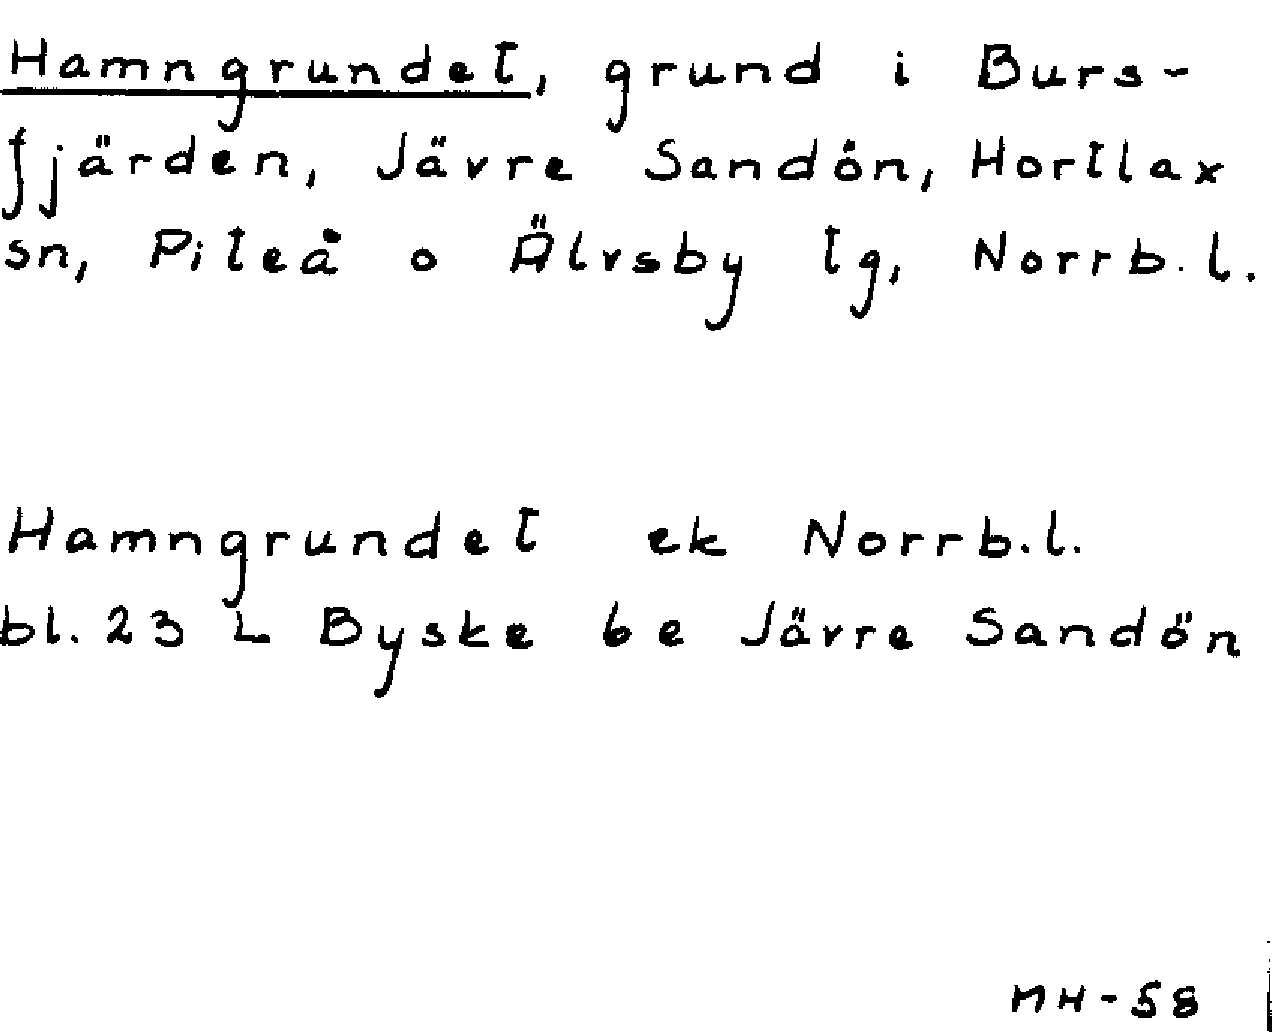 Hamngrundet, grund i Burs-
fjärden, Jävre Sandön, Hortlax
sn, Piteå o Älvsby tg, Norrb.l.
Hamngrundet ek Norrb.l.
bl. 23 L Byske 6e Jävre Sandön
MH-58